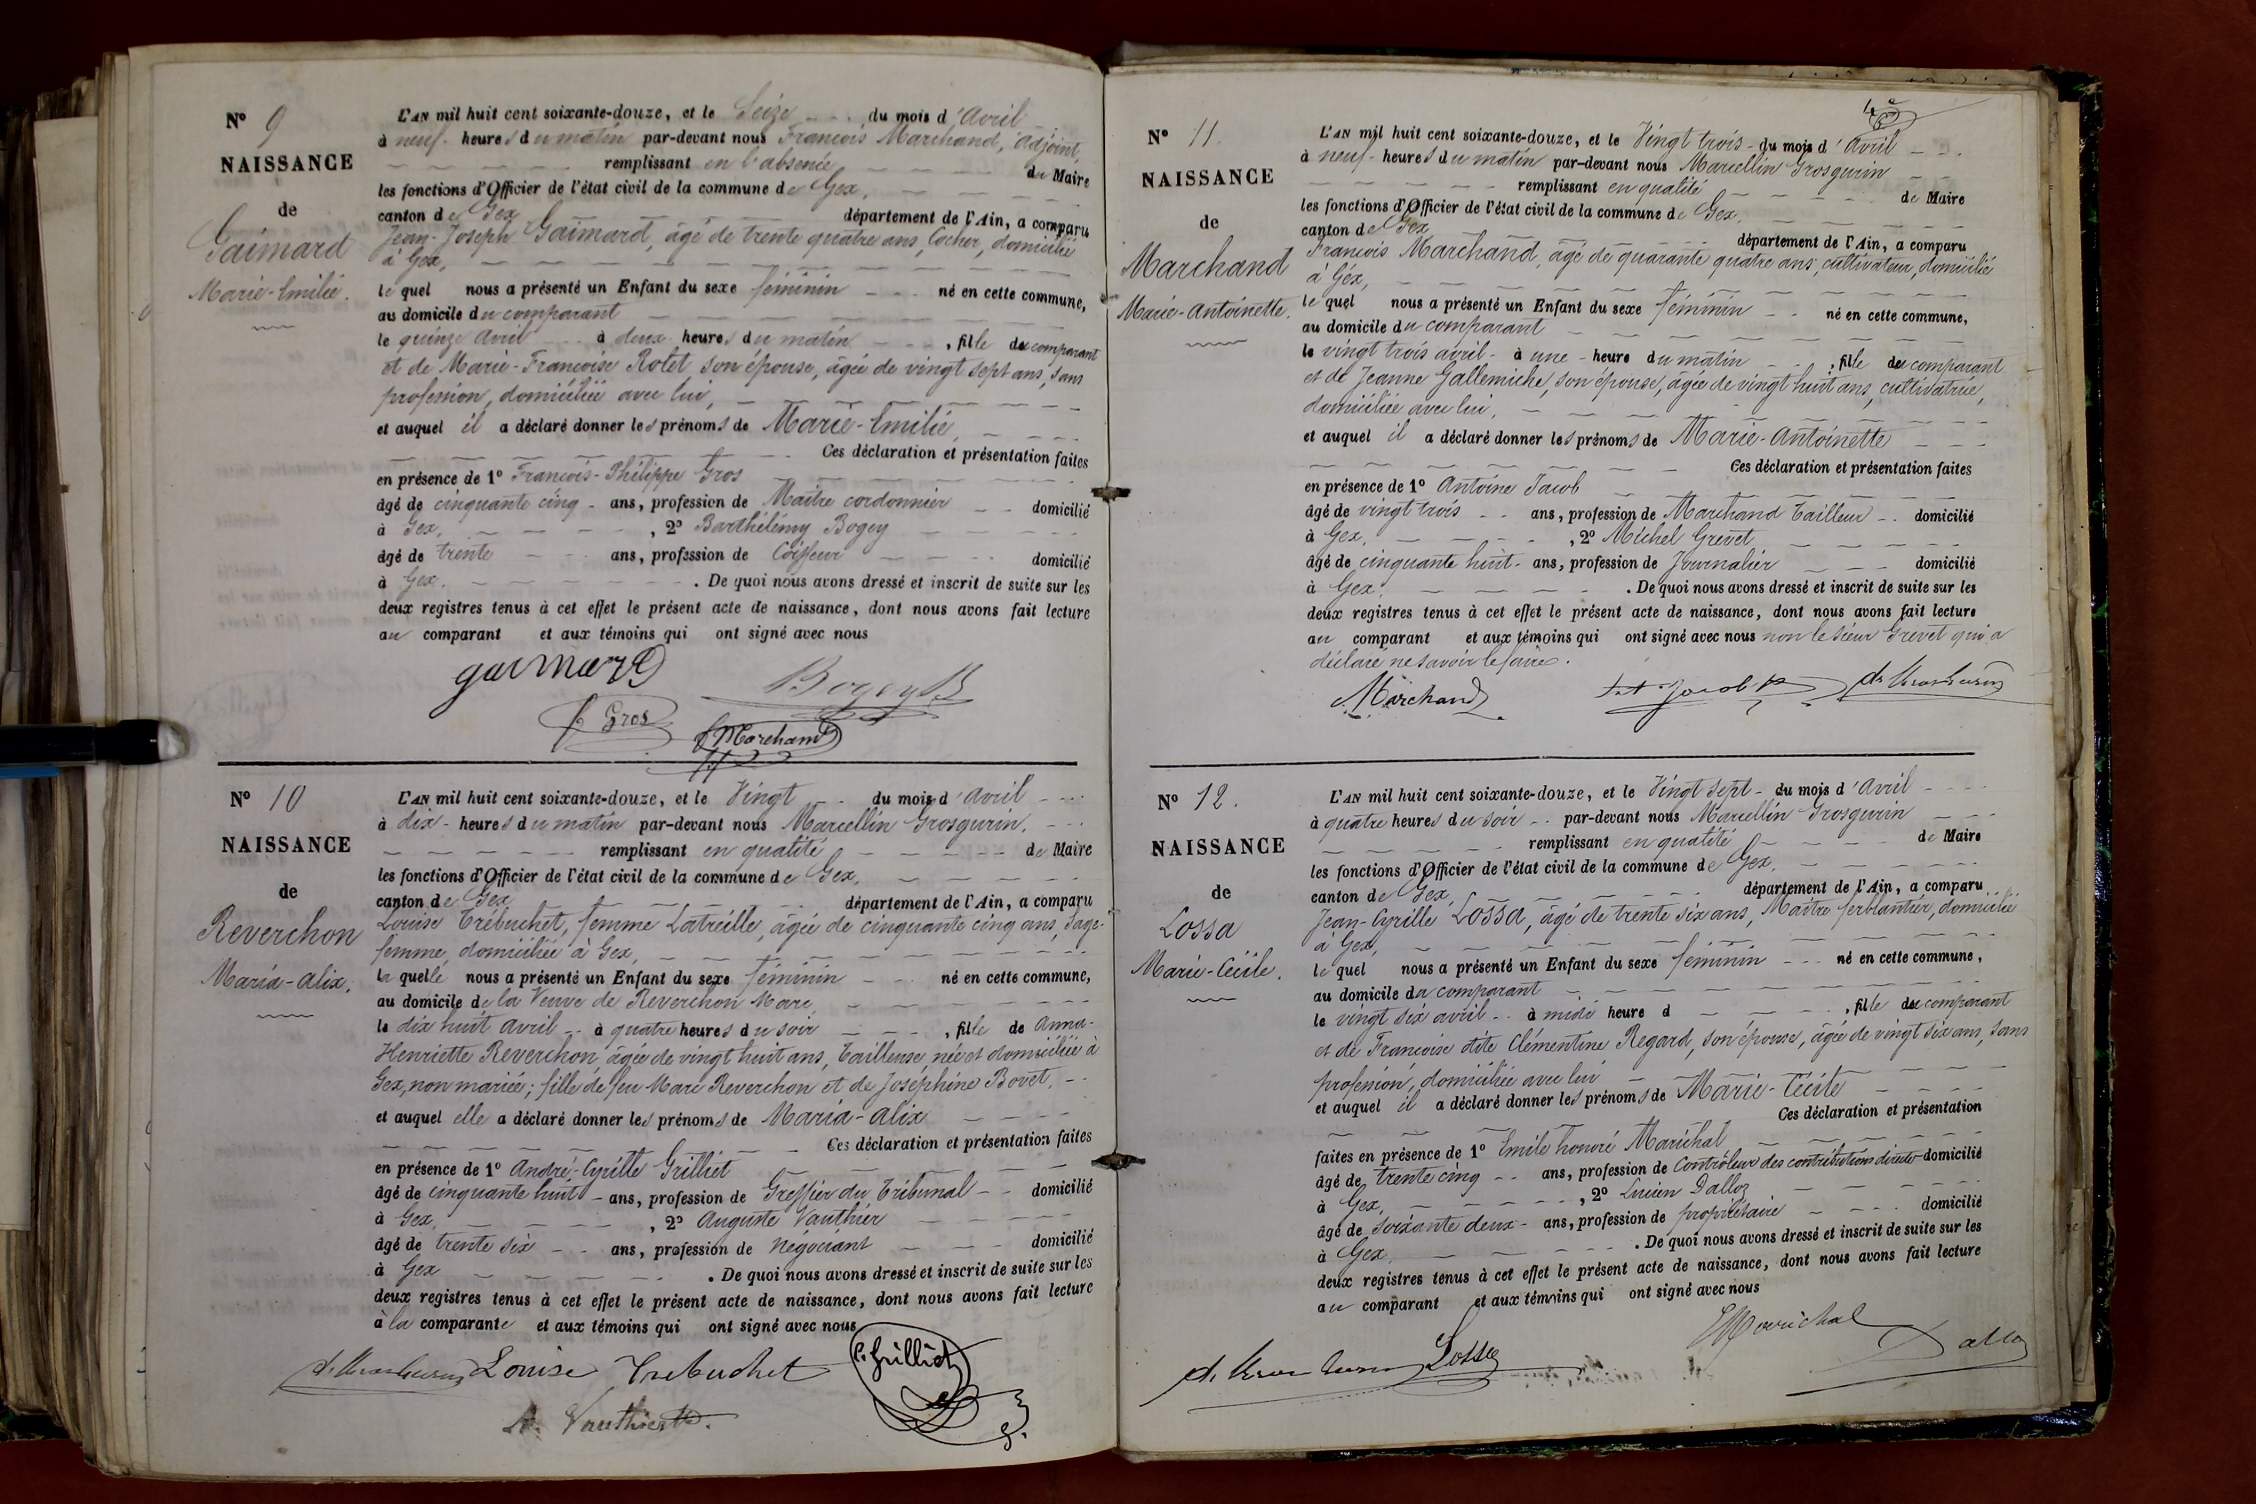 N° 9
NAISSANCE
de
Gaimard
Marie-Emilie.
L'AN mil huit cent soixante-douze, et le Seize du mois d'Avril
à neuf heures du matin par-devant nous François Marchand, adjoint,
remplissant en l'absence du Maire
les fonctions d'Officier de l'état civil de la commune de Gex,
canton de Gex département de l'Ain, a comparu
Jean-Joseph Gaimard, âgé de trente quatre ans, Cocher, domicilié
à Gex,
le quel nous a présenté un Enfant du sexe féminin né en cette commune,
au domicile du comparant
le quinze Avril à deux heures du matin, fille du comparant
et de Marie-Françoise Rolet son épouse, âgée de vingt sept ans, sans
profession, domiciliée avec lui,
et auquel il a déclaré donner les prénoms de Marie-Emilie,
Ces déclaration et présentation faites
en présence de 1° François-Philippe Gros
âgé de cinquante cinq ans, profession de Maître cordonnier domicilié
à Gex, , 2° Barthélémy Bogey
âgé de trente ans, profession de Coiffeur domicilié
à Gex. . De quoi nous avons dressé et inscrit de suite sur les
deux registres tenus à cet effet le présent acte de naissance, dont nous avons fait lecture
au comparant et aux témoins qui ont signé avec nous
gaimard
Bogey B
f Gros
f Marchand
N° 10
NAISSANCE
de
Reverchon
Maria-Alix.
L'AN mil huit cent soixante-douze, et le Vingt du mois d'Avril
à dix heures du matin par-devant nous Marcellin Grosgurin,
remplissant en qualité de Maire
les fonctions d'Officier de l'état civil de la commune de Gex,
canton de Gex département de l'Ain, a comparu
Louise Trébuchet, femme Latreille, âgée de cinquante cinq ans, Sage-
femme, domiciliée à Gex,
la quelle nous a présenté un Enfant du sexe féminin né en cette commune,
au domicile de la Veuve de Reverchon Marc,
le dix huit Avril à quatre heures du soir, fille de Anna-
Henriette Reverchon, âgée de vingt huit ans, Tailleuse, née et domiciliée à
Gex, non mariée; fille de feu Marc Reverchon et de Joséphine Bovet,
et auquel elle a déclaré donner les prénoms de Maria-Alix
Ces déclaration et présentation faites
en présence de 1° André-Cyrille Grilliet
âgé de cinquante huit ans, profession de Greffier du Tribunal domicilié
à Gex, , 2° Auguste Vauthier
âgé de trente six ans, profession de Négociant domicilié
à Gex . De quoi nous avons dressé et inscrit de suite sur les
deux registres tenus à cet effet le présent acte de naissance, dont nous avons fait lecture
à la comparante et aux témoins qui ont signé avec nous
Louise Trebuchet
C. Grilliet
A. Vauthier
N° 11.
NAISSANCE
de
Marchand
Marie-Antoinette.
L'AN mil huit cent soixante-douze, et le Vingt trois du mois d'Avril
à neuf heures du matin par-devant nous Marcellin Grosgurin
remplissant en qualité de Maire
les fonctions d'Officier de l'état civil de la commune de Gex,
canton de Gex département de l'Ain, a comparu
François Marchand, âgé de quarante quatre ans, cultivateur, domicilié
à Gex,
le quel nous a présenté un Enfant du sexe féminin né en cette commune,
au domicile du comparant
le vingt trois avril à une heure du matin, fille du comparant
et de Jeanne Gallemiche, son épouse, âgée de vingt huit ans, cultivatrice,
domiciliée avec lui,
et auquel il a déclaré donner les prénoms de Marie-Antoinette
Ces déclaration et présentation faites
en présence de 1° Antoine Jacob
âgé de vingt trois ans, profession de Marchand Tailleur domicilié
à Gex, , 2° Michel Grevet
âgé de cinquante huit ans, profession de Journalier domicilié
à Gex. . De quoi nous avons dressé et inscrit de suite sur les
deux registres tenus à cet effet le présent acte de naissance, dont nous avons fait lecture
au comparant et aux témoins qui ont signé avec nous non le sieur Grevet qui a
déclaré ne savoir le faire.
Marchand
Jacob
N° 12.
NAISSANCE
de
Lossa
Marie-Cécile.
L'AN mil huit cent soixante-douze, et le Vingt sept du mois d'Avril
à quatre heures du soir par-devant nous Marcellin Grosgurin
remplissant en qualité de Maire
les fonctions d'Officier de l'état civil de la commune de Gex,
canton de Gex, département de l'Ain, a comparu
Jean-Cyrille Lossa, âgé de trente six ans, Maître ferblantier, domicilié
à Gex,
le quel nous a présenté un Enfant du sexe féminin né en cette commune,
au domicile du comparant
le vingt six avril à midi heure d , fille du comparant
et de Françoise dite Clémentine Regard, son épouse, âgée de vingt six ans, sans
profession, domiciliée avec lui
et auquel il a déclaré donner les prénoms de Marie-Cécile
Ces déclaration et présentation
faites en présence de 1° Emile honoré Maréchal
âgé de trente cinq ans, profession de Contrôleur des contributions directes domicilié
à Gex, , 2° Lucien Dalloz
âgé de soixante deux ans, profession de propriétaire domicilié
à Gex, . De quoi nous avons dressé et inscrit de suite sur les
deux registres tenus à cet effet le présent acte de naissance, dont nous avons fait lecture
au comparant et aux témoins qui ont signé avec nous
Lossa
Maréchal
Dalloz